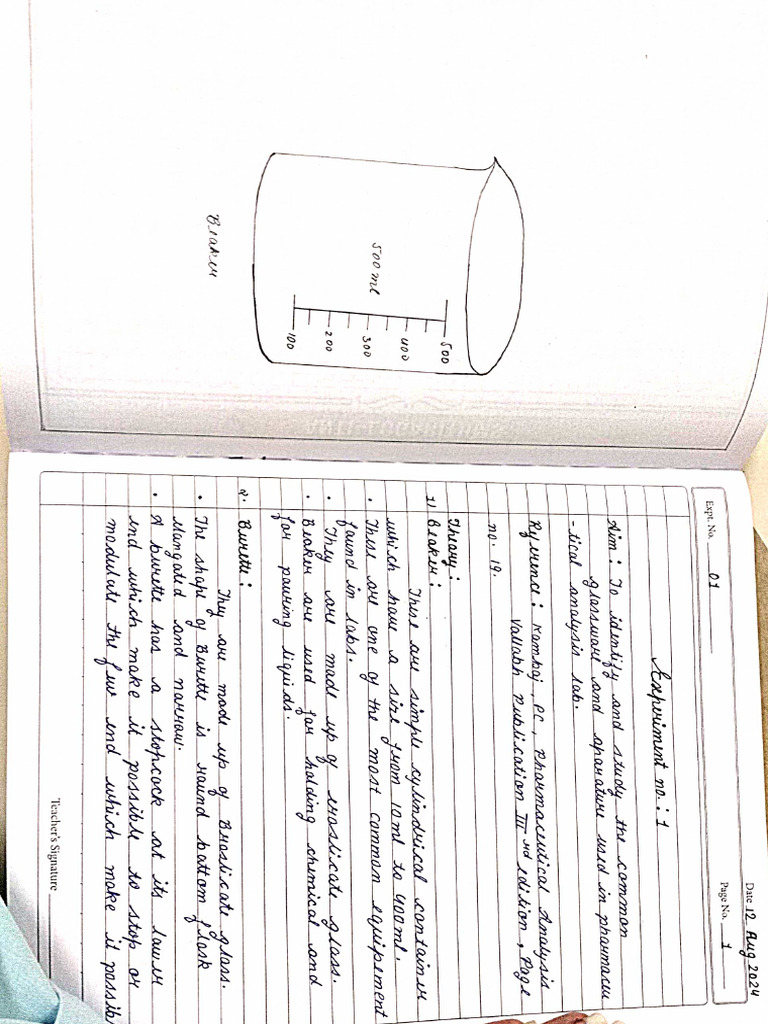 500 ml
500
400
300
200
100
Beaker
Date 12 Aug 2024
Expt. No. 01
Page No. 1
Experiment no.: 1
Aim: To identify and study the common
glassware and aparature used in pharmaceu
-tical analysis lab.
Refrence: Kamboj, PC, Pharmaceutical Analysis
Vallabh Publication III nd edition, Page
no. 19.
Theory:
1) Beaker:
These are simple cylindrical container
which have a size from 10 ml to 400 ml.
• These are one of the most common equipement
found in labs.
• They are made up of
glass.
• Beaker are used for holding chemical and
for pouring liquids.
2. Burette:
They are made up of
glass.
• The shape of Burette is round bottom flask
and narrow.
• A burette has a stopcock at its lower
end which make it possible to stop or
modulate the
end which make it possible
Teacher's Signature